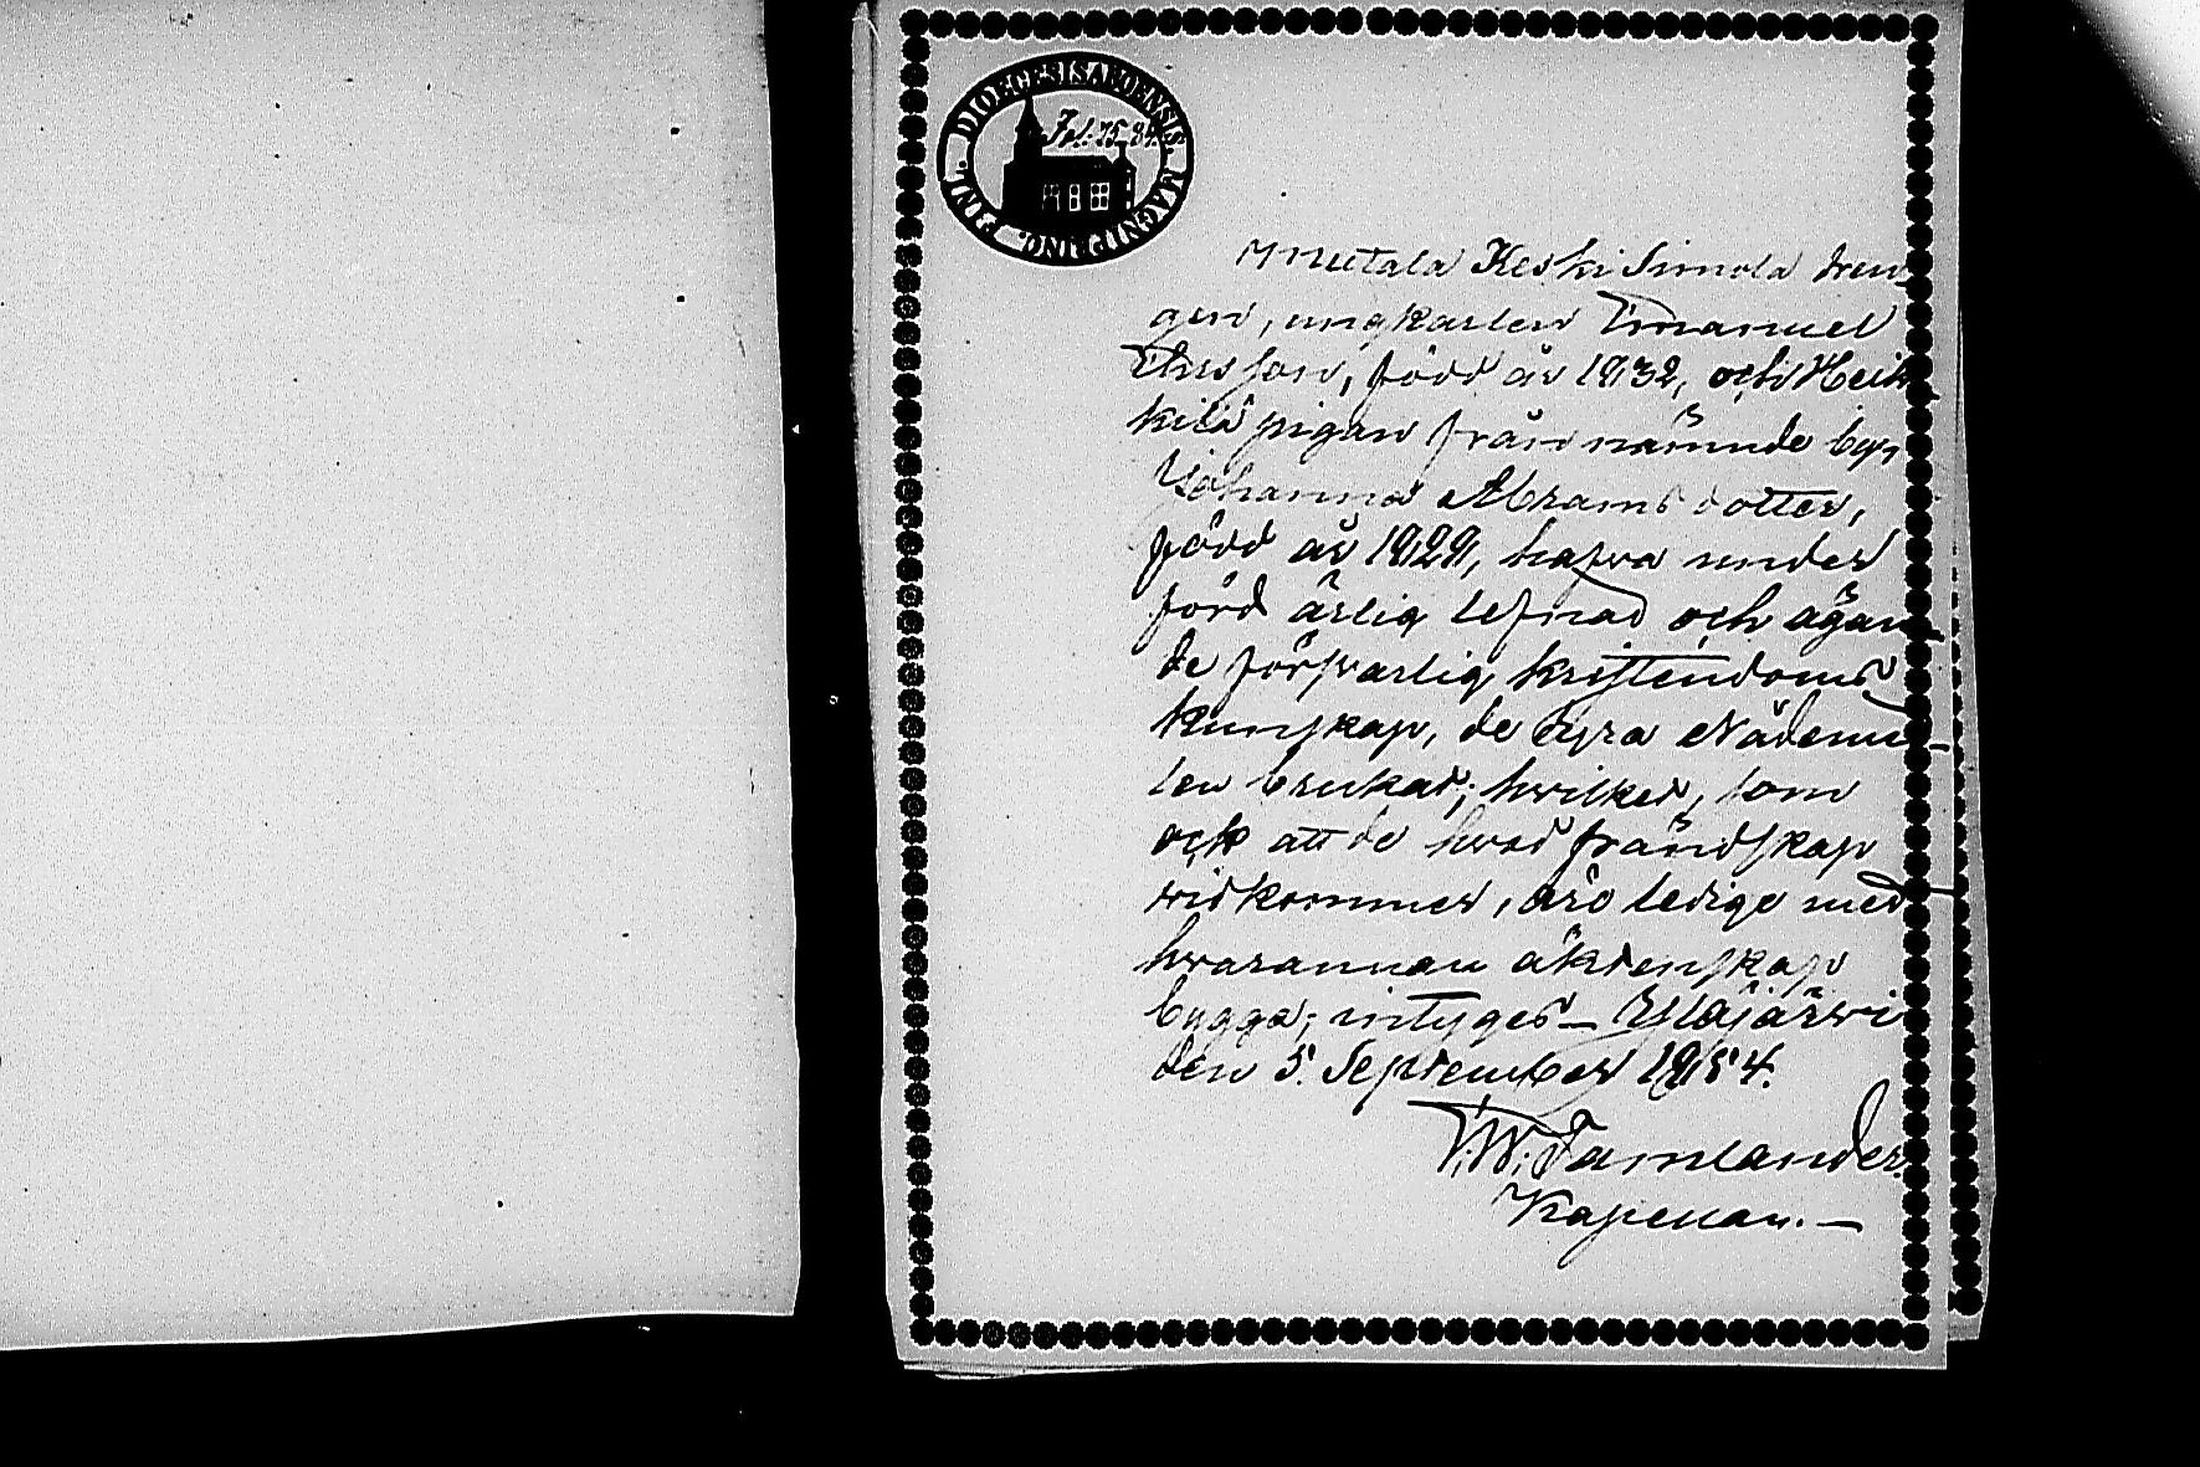 DIOECESIS ABOENSIS. MAGNI PRINC. FINL.
Fol: 75. 84.
Mutala Keski Simola dren-
gen, ungkarlen Emanuel
Thusson, född år 1832, och Heik-
kilä pigan från nämnde by,
Johanna Abrams dotter,
född år 1829, hafva under
förd ärlig lefnad och ägan-
de försvarlig kristendoms
kunskap, de dyra Nådeme-
len brukat; hwilket, som
ock att de hvad frändskap
widkommer, äro ledige med
hwarannan äktenskap
bygga; intyges _ Ylöjärwi
den 5. September 1854.
F: W: Tamlander.
Kapellan. _